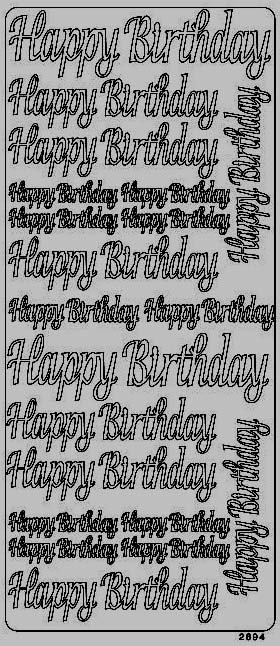 Happy Birthday
Happy Birthday
Happy Birthday
Happy Birthday
Happy Birthday Happy Birthday
Happy Birthday Happy Birthday
Happy Birthday
Happy Birthday Happy Birthday
Happy Birthday
Happy Birthday
Happy Birthday
Happy Birthday
Happy Birthday Happy Birthday
Happy Birthday Happy Birthday
Happy Birthday
2694